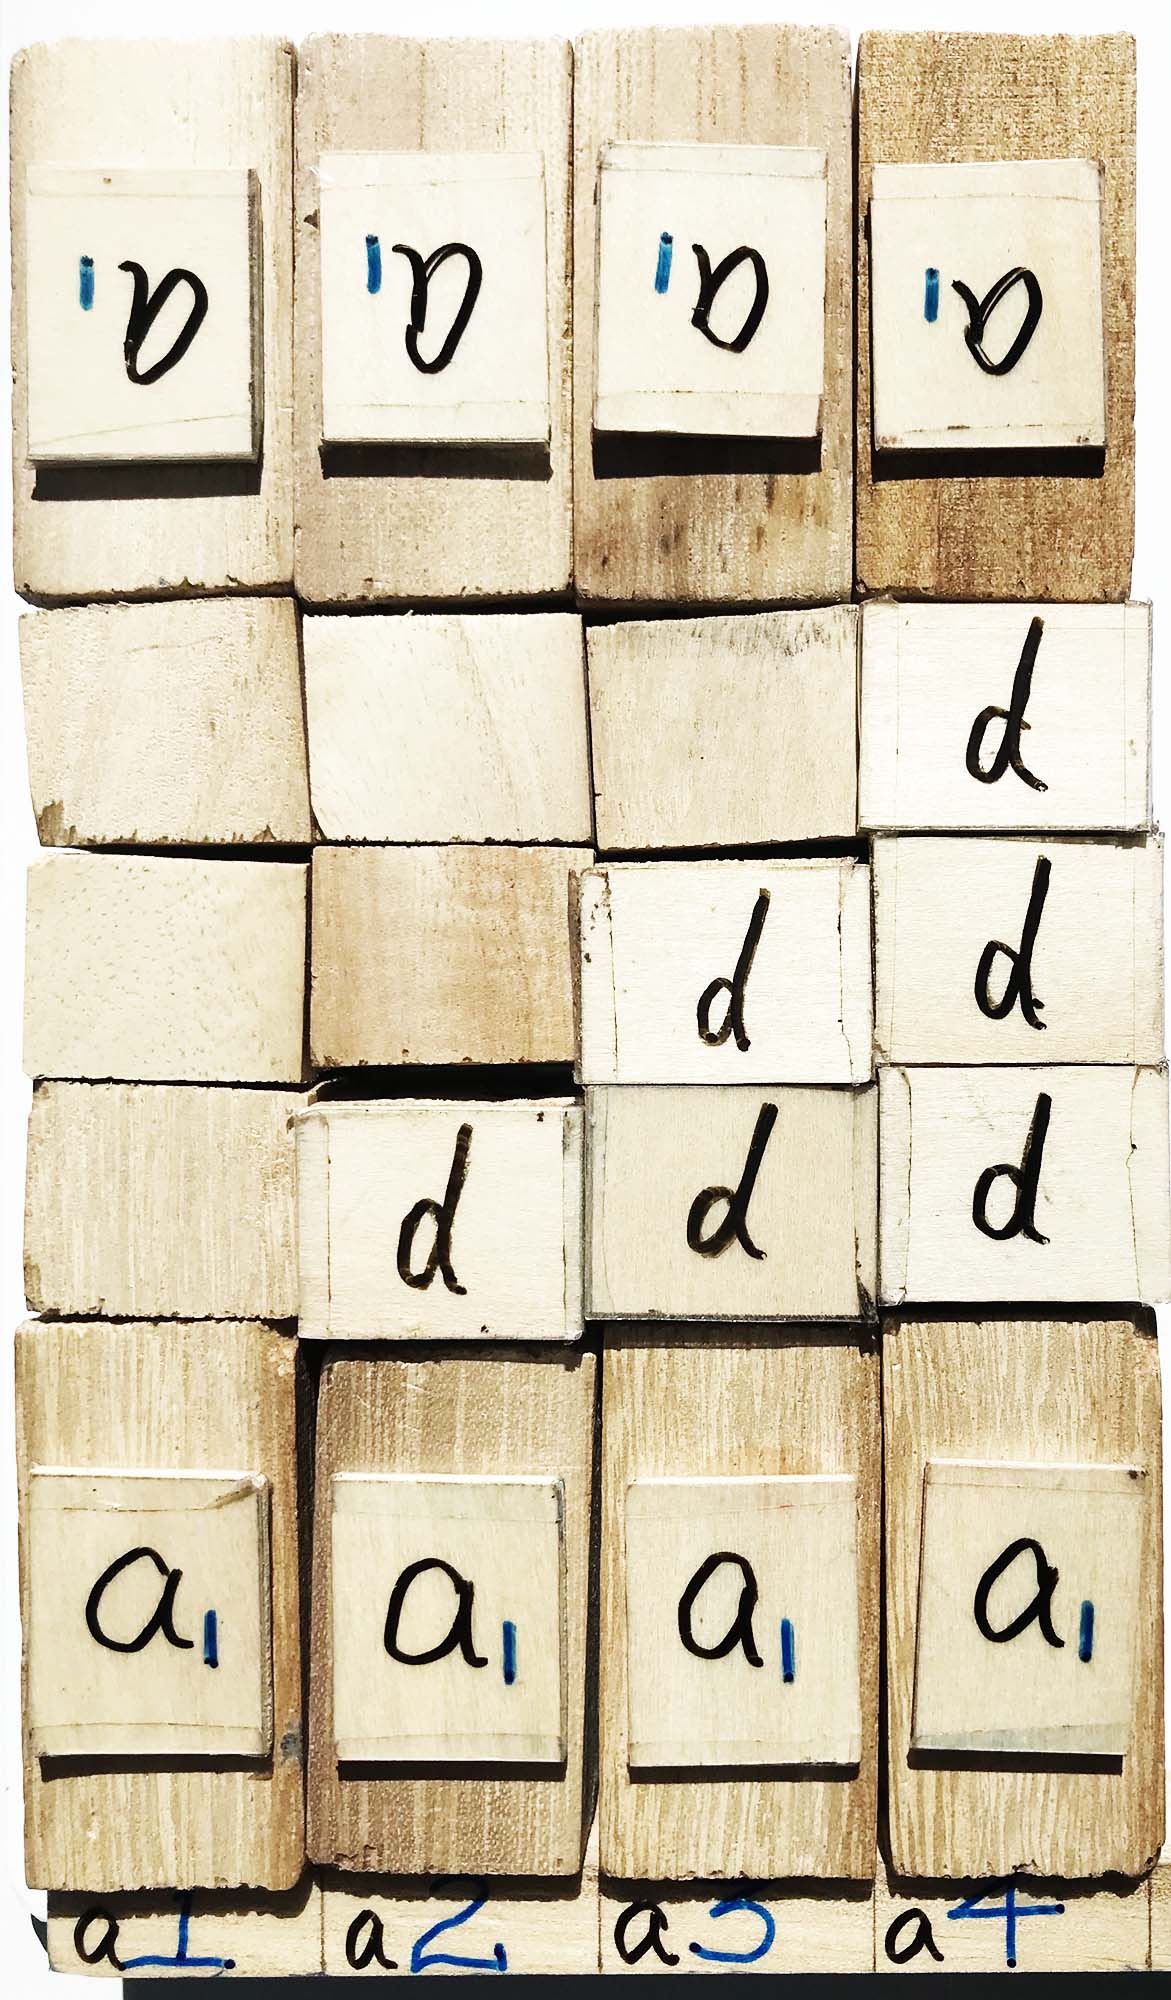 a1 a1 a1 a1
d
d d
d d d
a1 a1 a1 a1
a1 a2 a3 a4